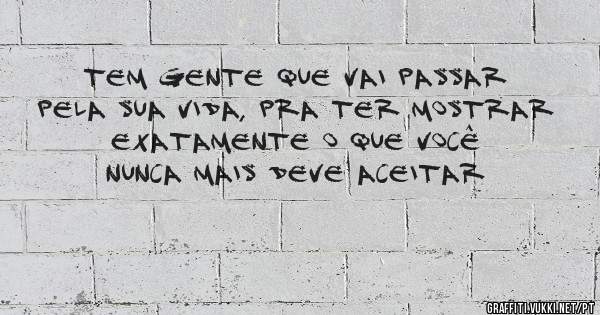 TEM GENTE QUE VAI PASSAR
PELA SUA VIDA, PRA TER MOSTRAR
EXATAMENTE O QUE VOCÊ
NUNCA MAIS DEVE ACEITAR
GRAFFITI.VUKKI.NET/PT